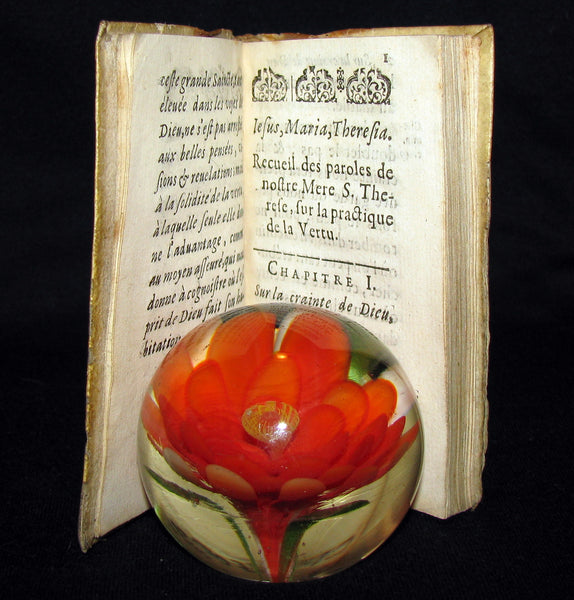 ceste grande Saincte
eleuée dans les voyes de
Dieu, ne s'est pas
aux belles pensées,
sions & reuelations
à la solidité de la vertu,
à laquelle seule elle
ne l'aduantage,
au moyen asseuré, qui
donne à cognoistre
prit de Dieu fait son
bitation
1
Iesus, Maria, Theresia.
Recueil des paroles de
nostre Mere S. The-
rese, sur la practique
de la Vertu.
CHAPITRE I.
Sur la crainte de Dieu,